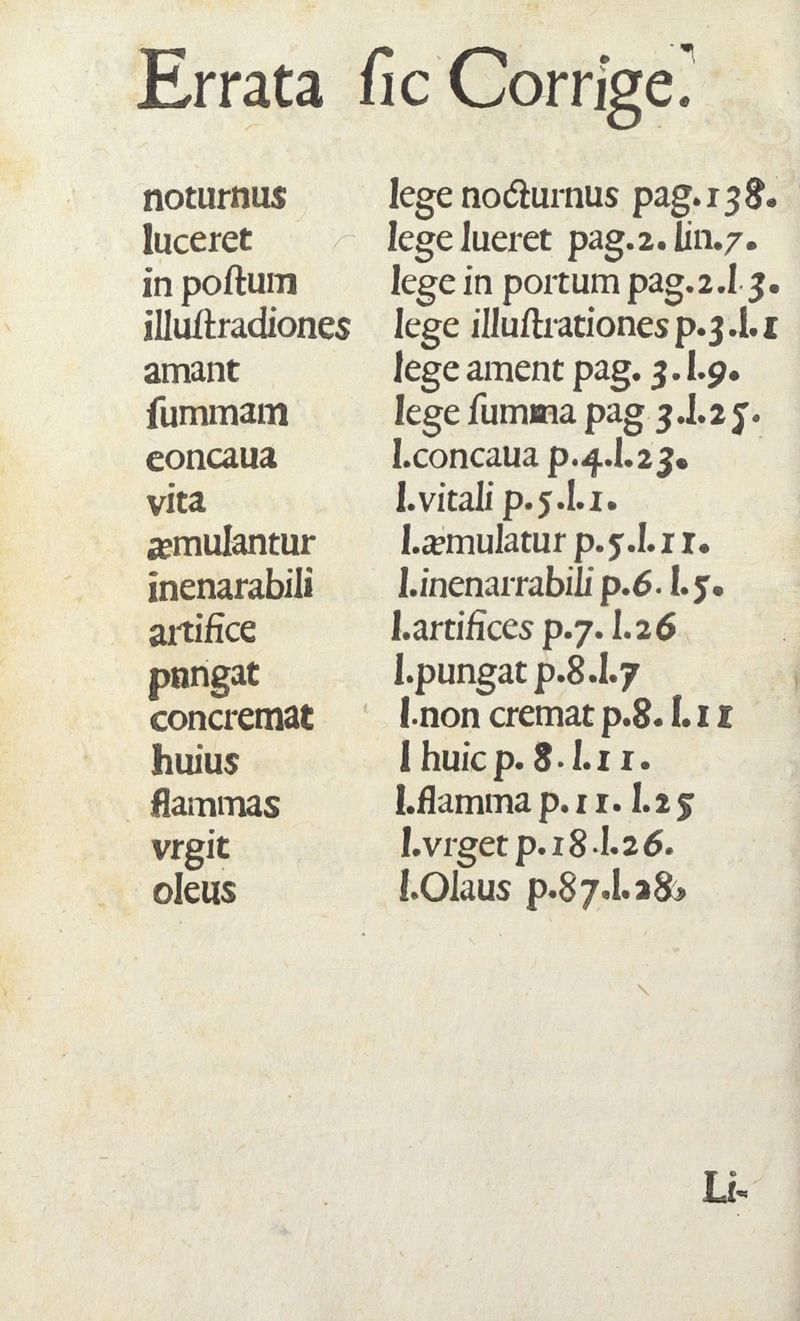 Errata ſic Corrige.
noturnus lege nocturnus pag.138.
luceret lege lueret pag.2.lin.7.
in poſtum lege in portum pag.2.l.3.
illuſtradiones lege illuſtrationes p.3.l.1
amant lege ament pag. 3.l.9.
ſummam lege ſumma pag 3.l.25.
eoncaua l.concaua p.4.l.23.
vita l.vitali p.5.l.1.
æmulantur l.æmulatur p.5.l.11.
inenarabili l.inenarrabili p.6.l.5.
artifice l.artifices p.7.l.26
pnngat l.pungat p.8.l.7
concremat l.non cremat p.8.l.11
huius l huic p. 8.l.11.
flammas l.flamma p.11.l.25
vrgit l.vrget p.18.l.26.
oleus l.Olaus p.87.l.28,
Li-